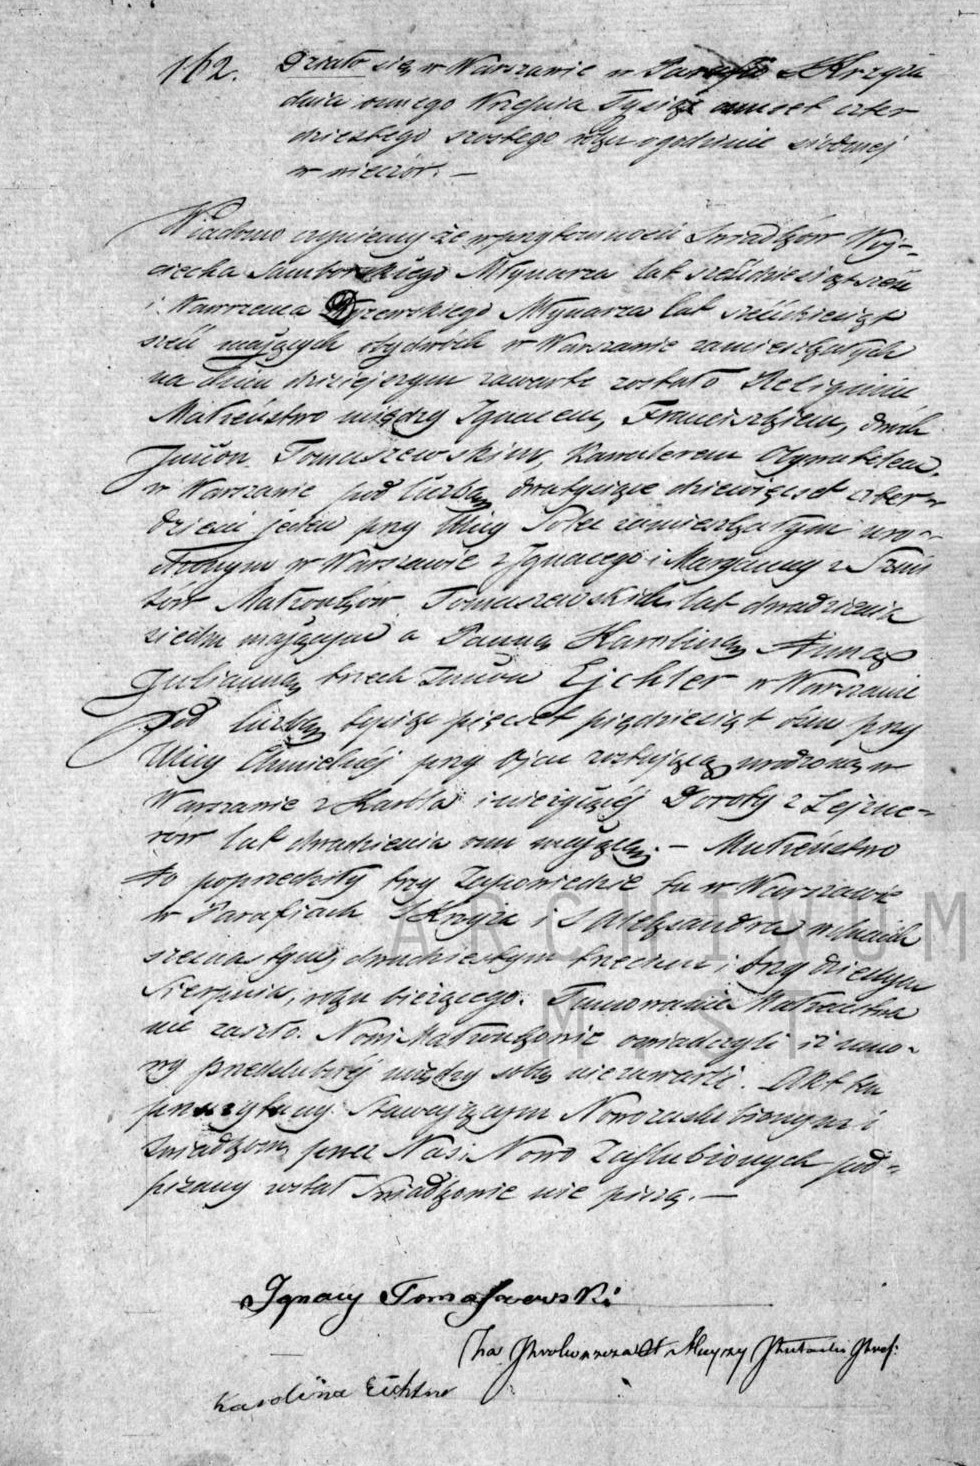 162. Działo się w Warszawie w Parafii S Krzyża
dnia ósmego Września Tysiąc ośmset czter
dziestego szóstego roku o godzinie siódmej
w wieczór. —
Wiadomo czynimy że w przytomności Świadków Woj-
ciecha Samborskiego Młynarza lat sześćdziesiąt sześć
i Wawrzeńca Młynarza lat sześćdziesiąt
sześć mających obydwóch w Warszawie zamieszkałych
na dniu dzisiejszym zawarte zostało Religijne
Małżeństwo między Ignacem, Franciszkiem, dwóch
Imion Tomaszewskim, Kawalerem Obywatelem
w Warszawie pod liczbą dwatysiące dziewięćset czter-
dzieści jeden przy Ulicy Solec zamieszkałym uro-
dzonym w Warszawie z Ignacego i Maryanny z
Małżonków Tomaszewskich lat dwadzieścia
siedm mającym a Panną Karoliną Anną
Julianną trzech Imion Ejchler w Warszawie
pod liczbą tysiąc pięćset pięćdziesiąt ośm przy
Ulicy Chmielnéj przy Ojcu zostającą urodzoną w
Warszawie z Karola i nieżyjącéj Doroty z Lejzne-
rów lat dwadzieścia ośm mającą. — Małżeństwo
to poprzedziły trzy Zapowiedzie tu w Warszawie
w Parafiach S Krzyża i S Alexandra w dniach
szesnastym, dwudziestym trzecim i
Sierpnia, roku bieżącego. Tamowanie Małżeństwa
nie zaszło. Nowi Małżonkowie oświadczyli iż umo-
wy przedślubnéj między sobą nie zawarli. Akt ten
przeczytany Stawającym Nowozaślubionym i
Świadkom, przez Nas i Nowo Zaślubionych pod-
pisany został Świadkowie nie piszą. —
ARCHIWUM
M. ST.
Ignacy Tomaszewski
Karolina Eichler